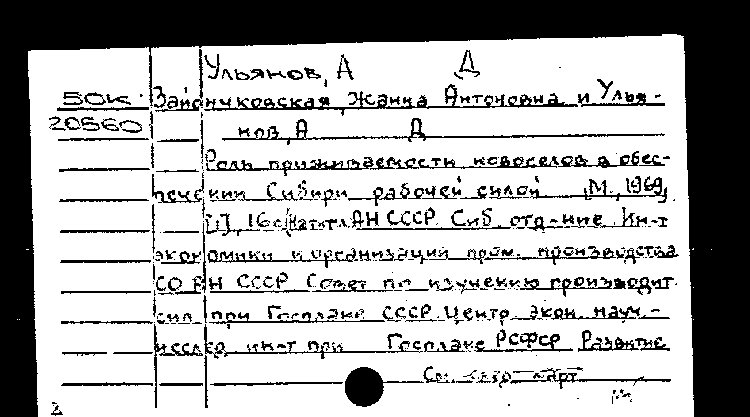 Ульянов, А Д
50к Зайончковская, Жанна Антоновна и Улья-
20560 нов, А Д
Роль приживаемости новоселов в обес-
печении Сибири рабочей силой М., 1969,
[1], 16с (На тит.л. АН СССР. Сиб. отд-ние. Ин-т
экономики и организации пром. производства
СО АН СССР Совет по изучению производит.
сил при Госплане СССР. Центр. экон. науч.-
исслед. ин-т при Госплане РСФСР. Развитие
См. след. карт.